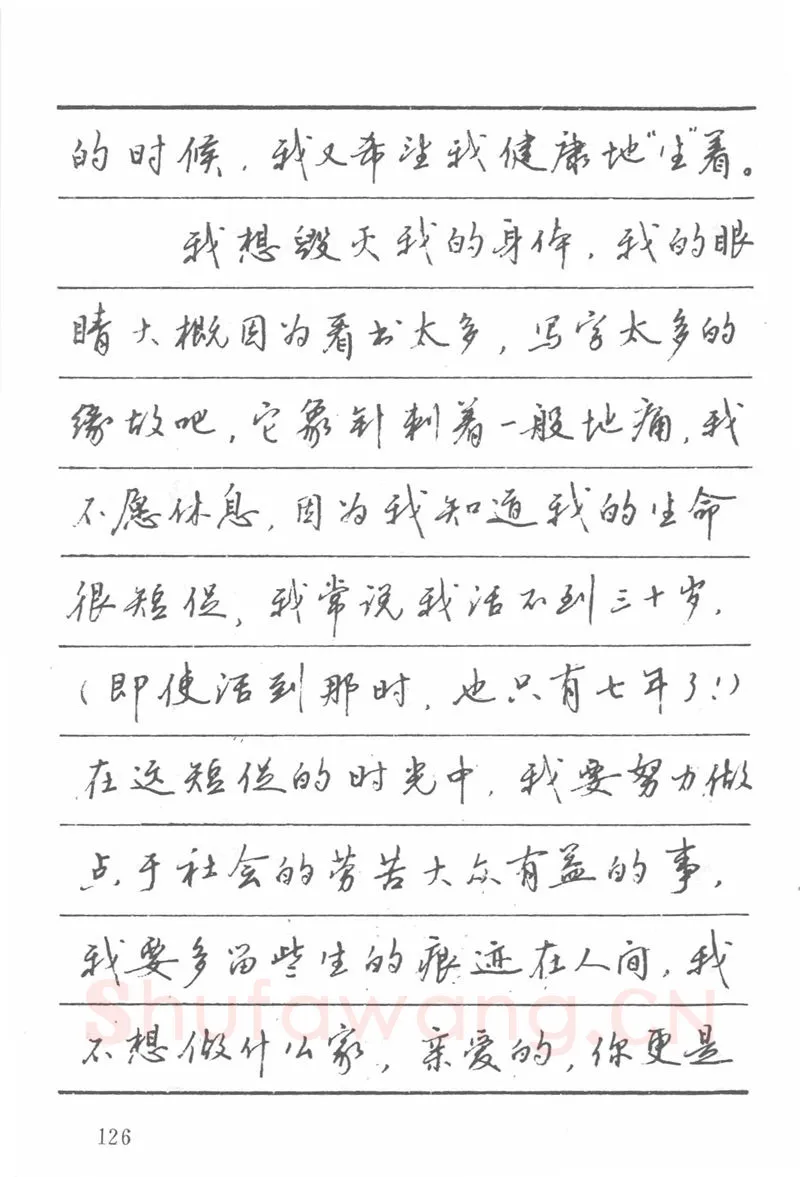 的时候，我又希望我健康地“生”着。
我想毁灭我的身体，我的眼
睛大概因为看书太多，写字太多的
缘故吧，它象针刺着一般地痛，我
不愿休息，因为我知道我的生命
很短促，我常说我活不到三十岁，
（即使活到那时，也只有七年了！）
在这短促的时光中，我要努力做
点于社会的劳苦大众有益的事，
我要多留些生的痕迹在人间，我
不想做什么家，亲爱的，你更是
Shufawang.CN
126